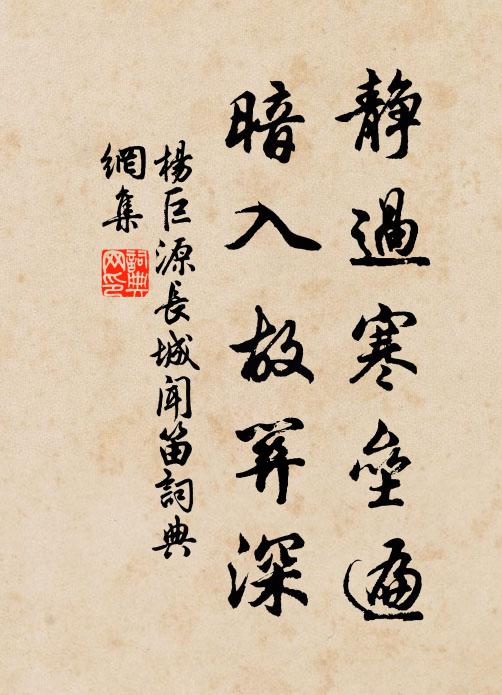 靜過寒垒遍
暗入故關深
楊巨源長城聞笛詞典
網集
詞典
网印